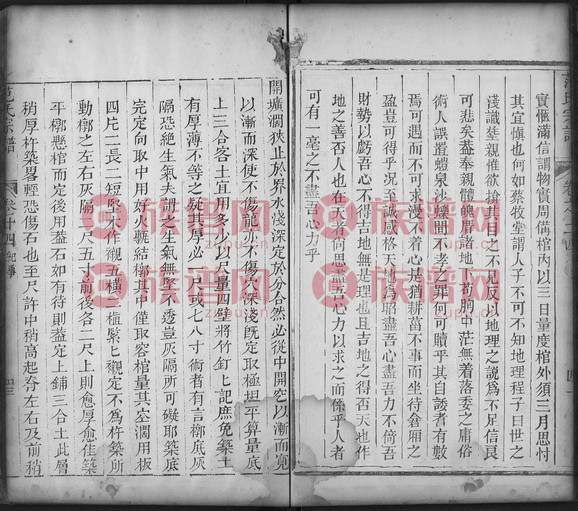 實愜滿信謂物實周備棺內以三日量度棺外須三月思忖
其宜愼也何如蔡牧堂謂人子不可不知地理程子曰世之
淺識惟欲掩其目之不見反以地理之說爲不足信良
可悲矣葢奉親體魄厝諸地下苟胸中茫無着落委之庸俗
術人誤置蟻泉沙礫間不孝之罪何可贖乎其自諉者有數
焉可遇而不可求漫不着心是猶耕當不事而坐待倉厢之
盈豈可得乎況至誠感格天地爲昭盡吾心盡吾力不倚吾
財勢以虧吾心不得吉地無理也且吉地之得否天也作
地之善否人也在天者何思吾心力以求之而係乎人者
可有一毫之不盡吾心力乎
開壙濶狹止於界水淺深定於分合然必從中開空以漸而寬
以漸而深使不傷龍亦不傷以深淺旣定取極坦平算量底
上三合客土宜用多少以尺量四壁將竹釘匕記庶免築土
有厚薄不等之礙其厚必一尺或七八寸術者有言槨底灰
隔恐絶生氣夫謂之生氣無堅不透豈灰隔所可礙耶築底
完定向取中用好 聽結槨其中僅取容棺量其空濶用板
四片二長二短 作 五橫 楅緊匕櫬定不爲杵築所
動槨之左右灰隔一尺五寸前後各二尺上則愈厚愈佳築
平槨懸棺而定後用葢石如有待則葢定上鋪三合土此層
稍厚杵築畧輕恐傷石也至尺許中稍高起脊左右及前稍
族譜网
zupu.cn